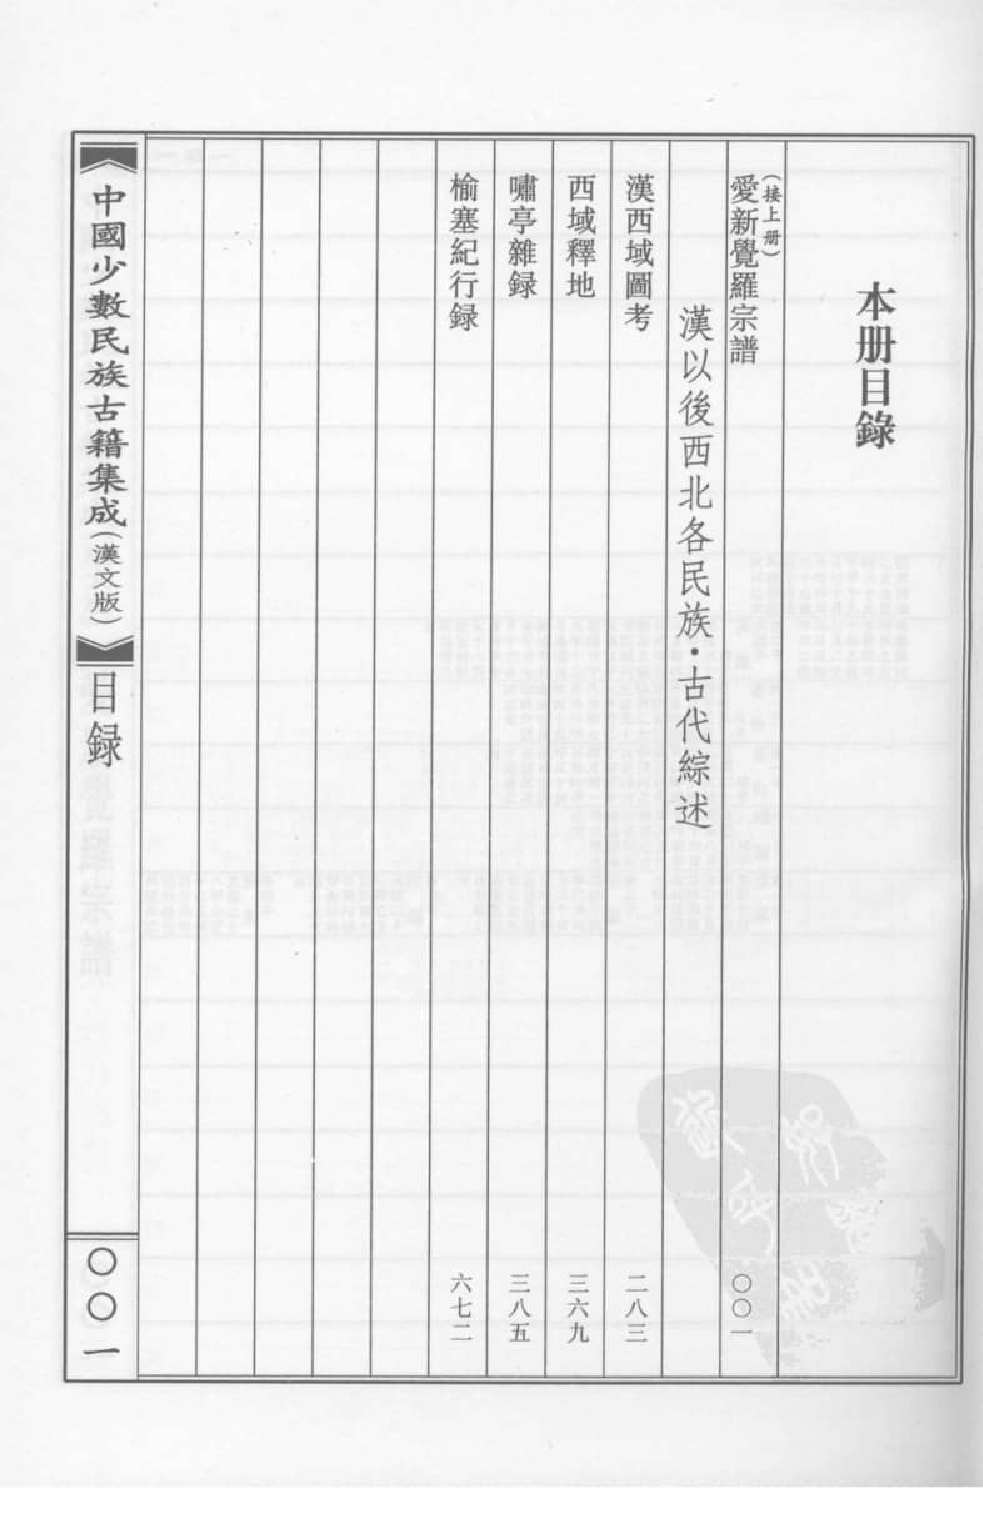 本册目錄
(接上册)
愛新覺羅宗譜 〇〇一
漢以後西北各民族·古代綜述
漢西域圖考 二八三
西域釋地 三六九
嘯亭雜録 三八五
榆塞紀行録 六七二
中國少數民族古籍集成(漢文版)
目録
〇〇一